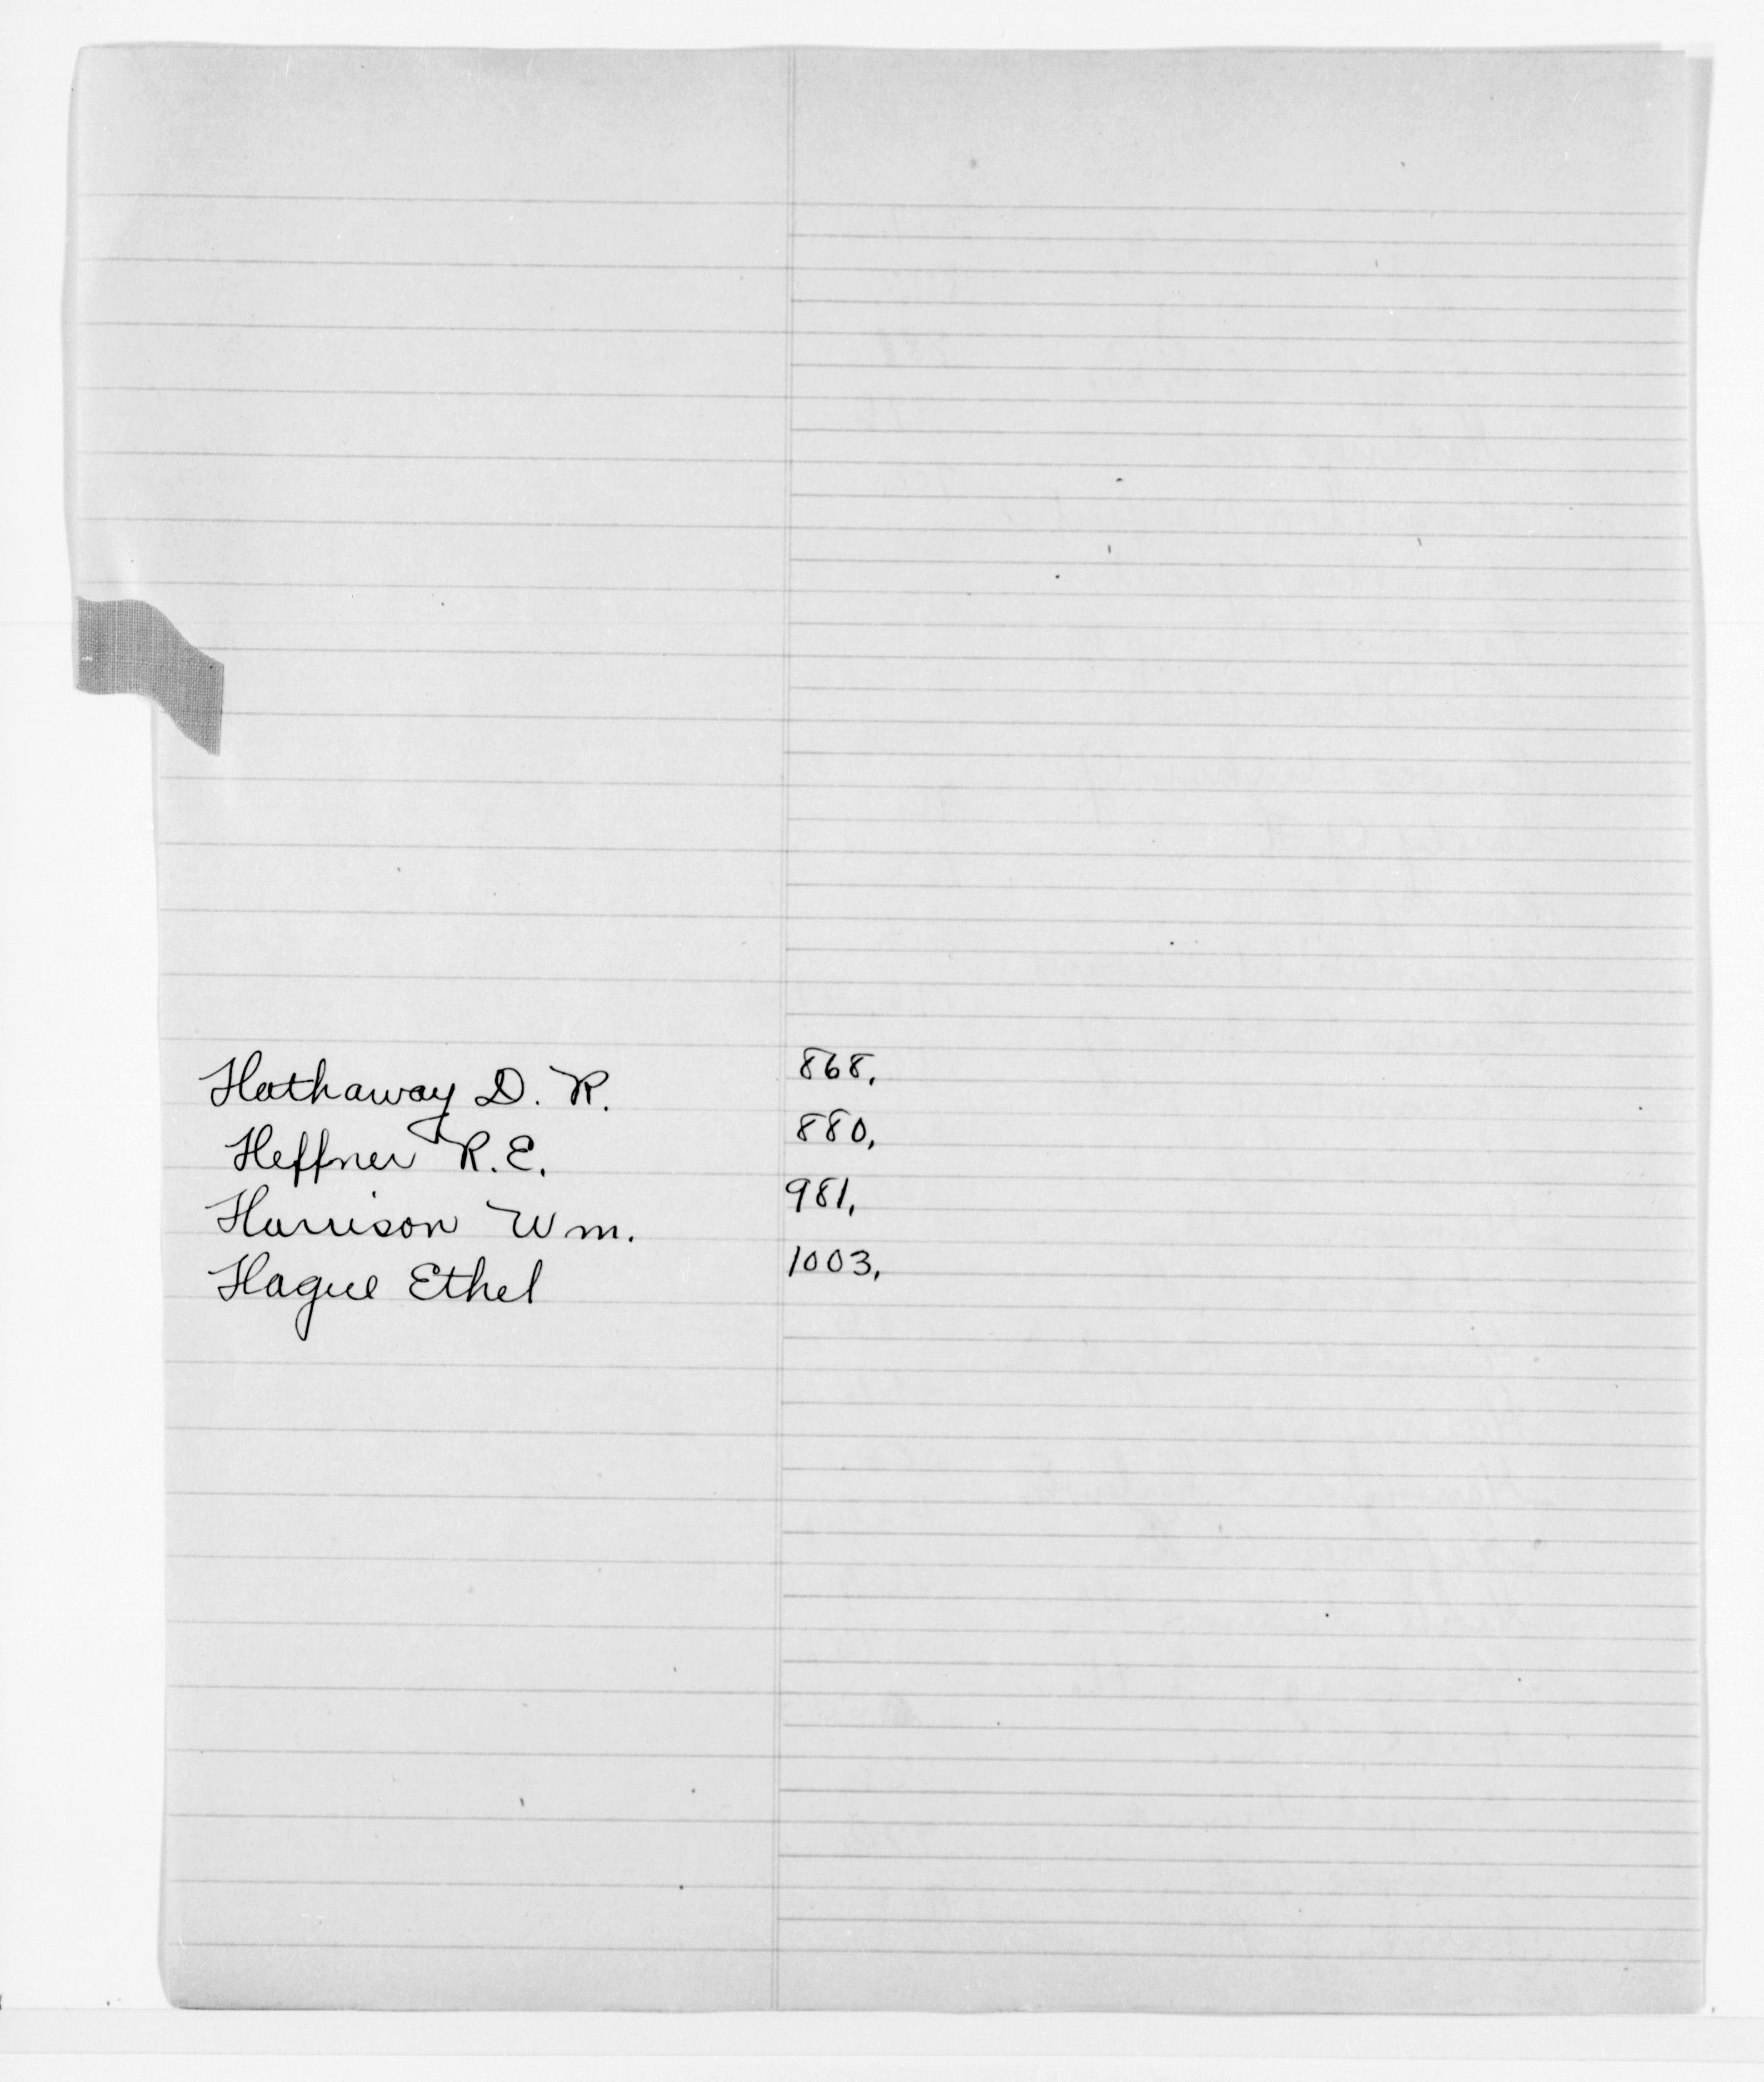 Hathaway D. R. 868,
Heffner R. E. 880,
Harrison Wm. 981,
Hague Ethel 1003,